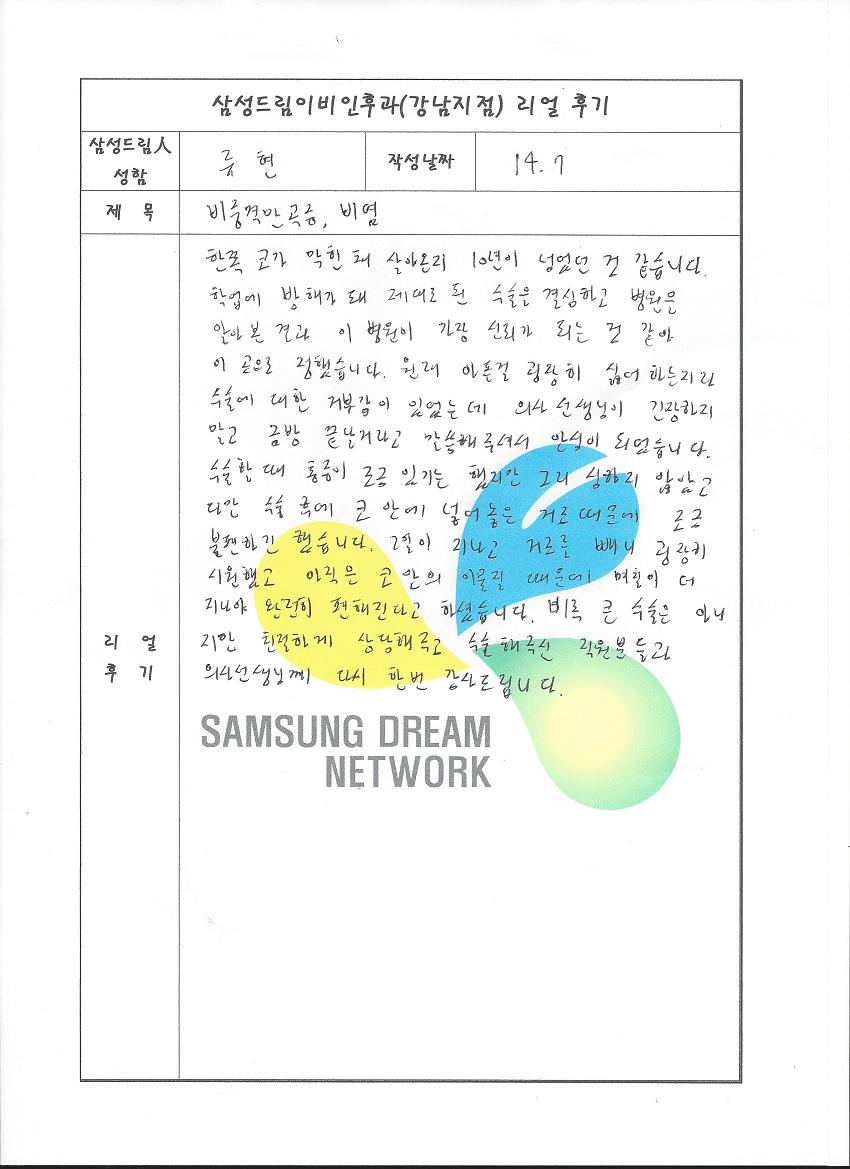 삼성드림이비인후과(강남지점) 리얼 후기
삼성드림人 성함
류 현
작성날짜
14. 7
제 목
비중격만곡증, 비염
한쪽 코가 막힌 채 살아온지 10년이 넘었던 것 같습니다.
학업에 방해가 돼 제대로 된 수술을 결심하고 병원을
알아 본 결과 이 병원이 가장 신뢰가 되는 것 같아
이 곳으로 정했습니다. 원래 아픈걸 굉장히 싫어 하는지라
수술에 대한 거부감이 있었는데 의사 선생님이 긴장하지
말고 금방 끝날거라고 말씀해주셔서 안심이 되었습니다.
수술할 때 통증이 조금 있기는 했지만 그리 심하지 않았고
다만 수술 후에 코 안에 넣어놓은 거즈 때문에 조금
불편하긴 했습니다. 2일이 지나고 거즈를 빼니 굉장히
시원했고 아직은 코 안의 이물질 때문에 며칠이 더
지나야 완전히 편해진다고 하셨습니다. 비록 큰 수술은 아니
지만 친절하게 상담해주고 수술해주신 직원분들과
의사선생님께 다시 한번 감사드립니다.
리 얼
후 기
SAMSUNG DREAM
NETWORK